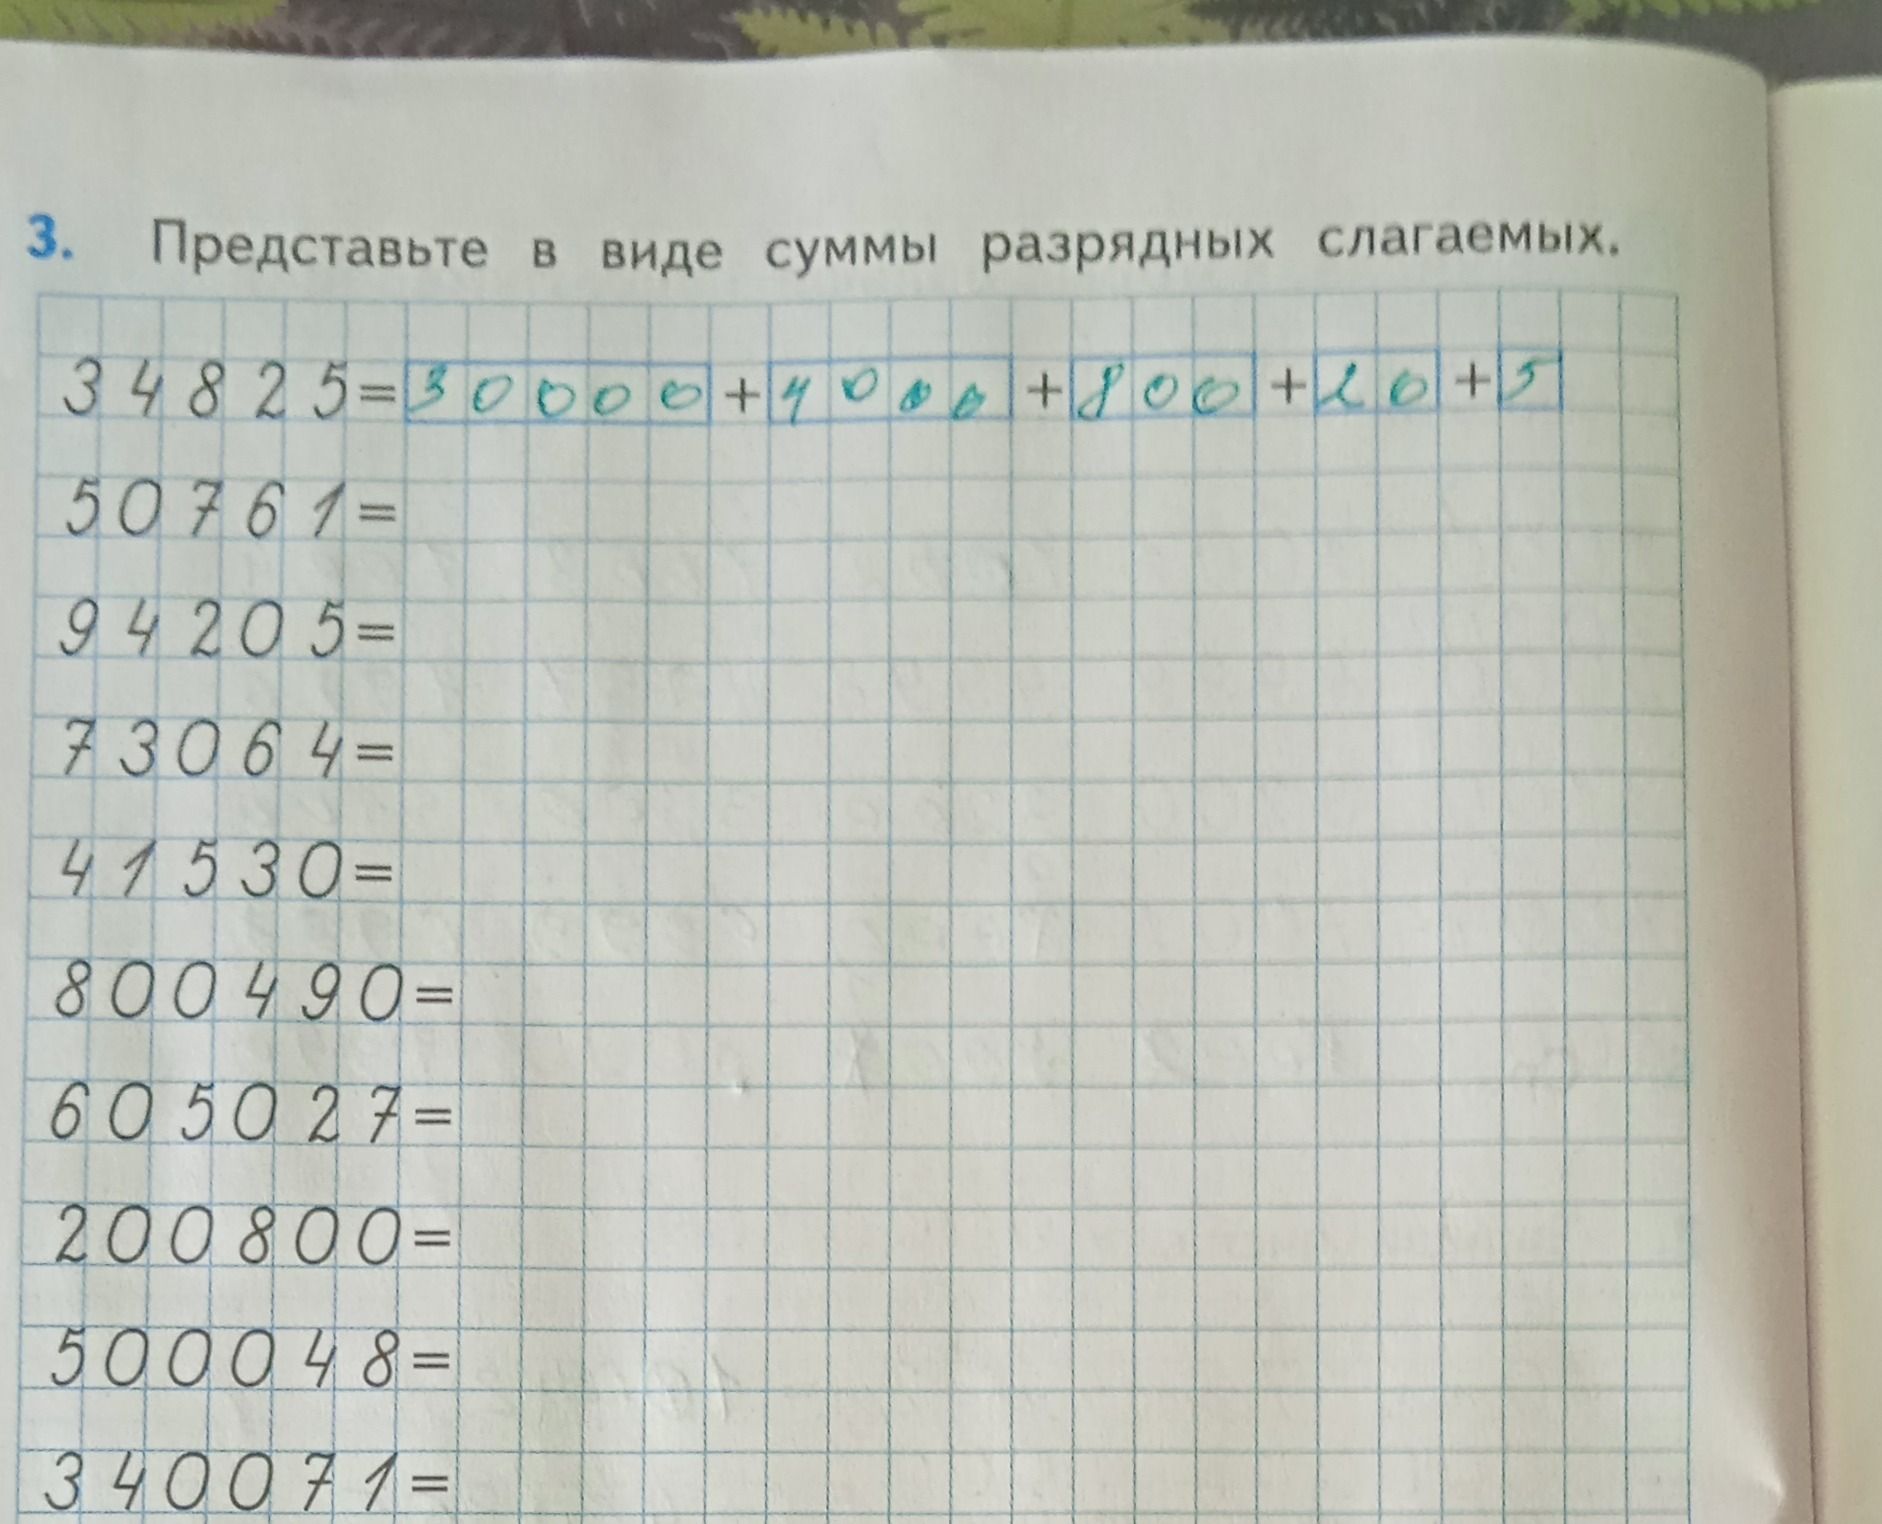 3. Представьте в виде суммы разрядных слагаемых.
34825=30000+4000+800+20+5
50761=
94205=
73064=
41530=
800490=
605027=
200800=
500048=
340071=